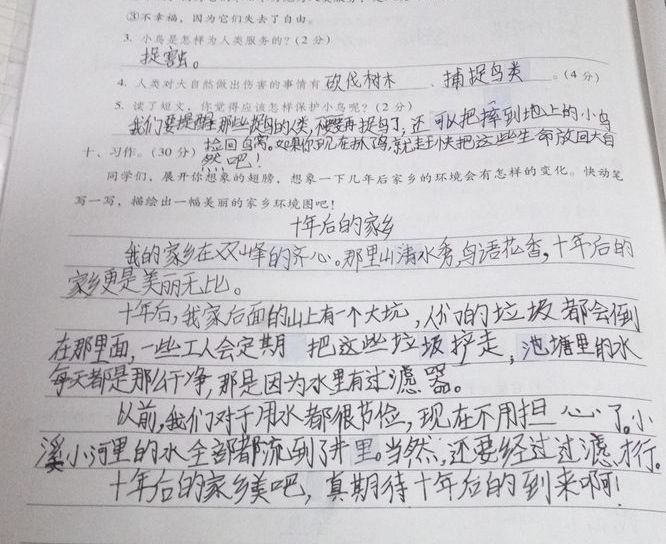 ③不幸福，因为它们失去了自由。
3. 小鸟是怎样为人类服务的？（2 分）
捉害虫。
4. 人类对大自然做出伤害的事情有 砍伐树木 、捕捉鸟类 。（4 分）
5. 读了短文，你觉得应该怎样保护小鸟呢？（2 分）
我们要提醒那些捉鸟的人类，不要再捉鸟了，还可以把摔到地上的小鸟
捡回鸟窝。如果你现在抓了鸟，就赶快把这些生命放回大自
然吧！
十、习作。（30 分）
同学们，展开你想象的翅膀，想象一下几年后家乡的环境会有怎样的变化。快动笔
写一写，描绘出一幅美丽的家乡环境图吧！
十年后的家乡
我的家乡在双峰的齐心。那里山清水秀，鸟语花香，十年后的
家乡更是美丽无比。
十年后，我家后面的山上有一个大坑，人们的垃圾都会倒
在那里面，一些工人会定期 把这些垃圾拧走，池塘里的水
每天都是那么干净，那是因为水里有过滤器。
以前，我们对于用水都很节俭，现在不用担心了。小
溪小河里的水全部都流到了井里。当然，还要经过过滤才行。
十年后的家乡美吧，真期待十年后的到来啊！